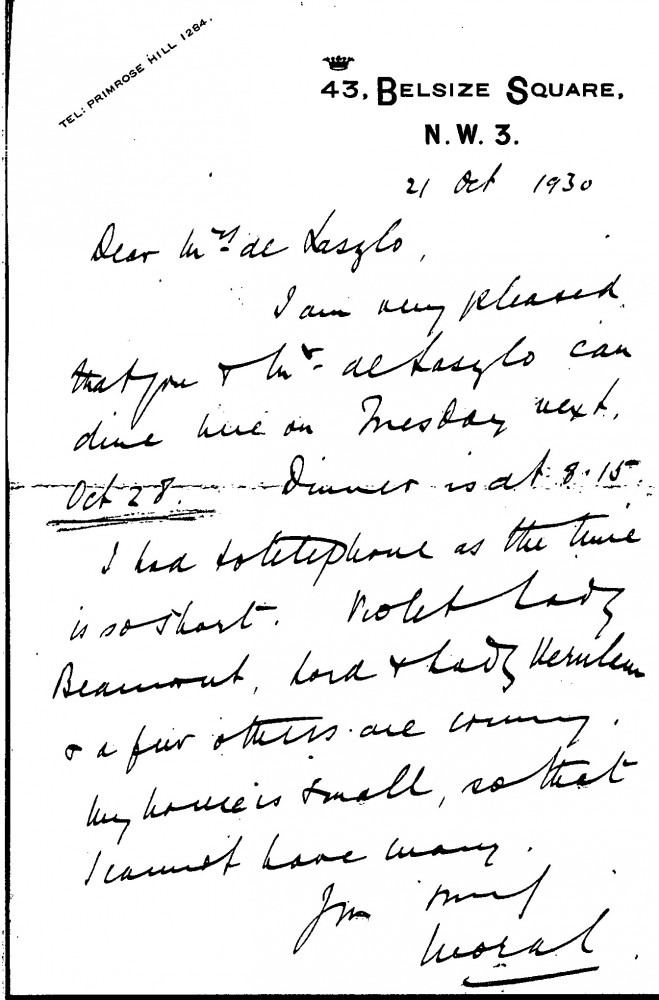 TEL: PRIMROSE HILL 1284.
43, BELSIZE SQUARE,
N.W. 3.
21 Oct 1930
Dear Mrs de Laszlo,
I am very pleased
that you & Mr de Laszlo can
dine here on Tuesday next,
Oct 28. Dinner is at 8.15.
I had to telephone as the time
is so short. Violet Lady
Beaumont, Lord & Lady Verulam
& a few others are coming.
My house is small, so that
I cannot have many.